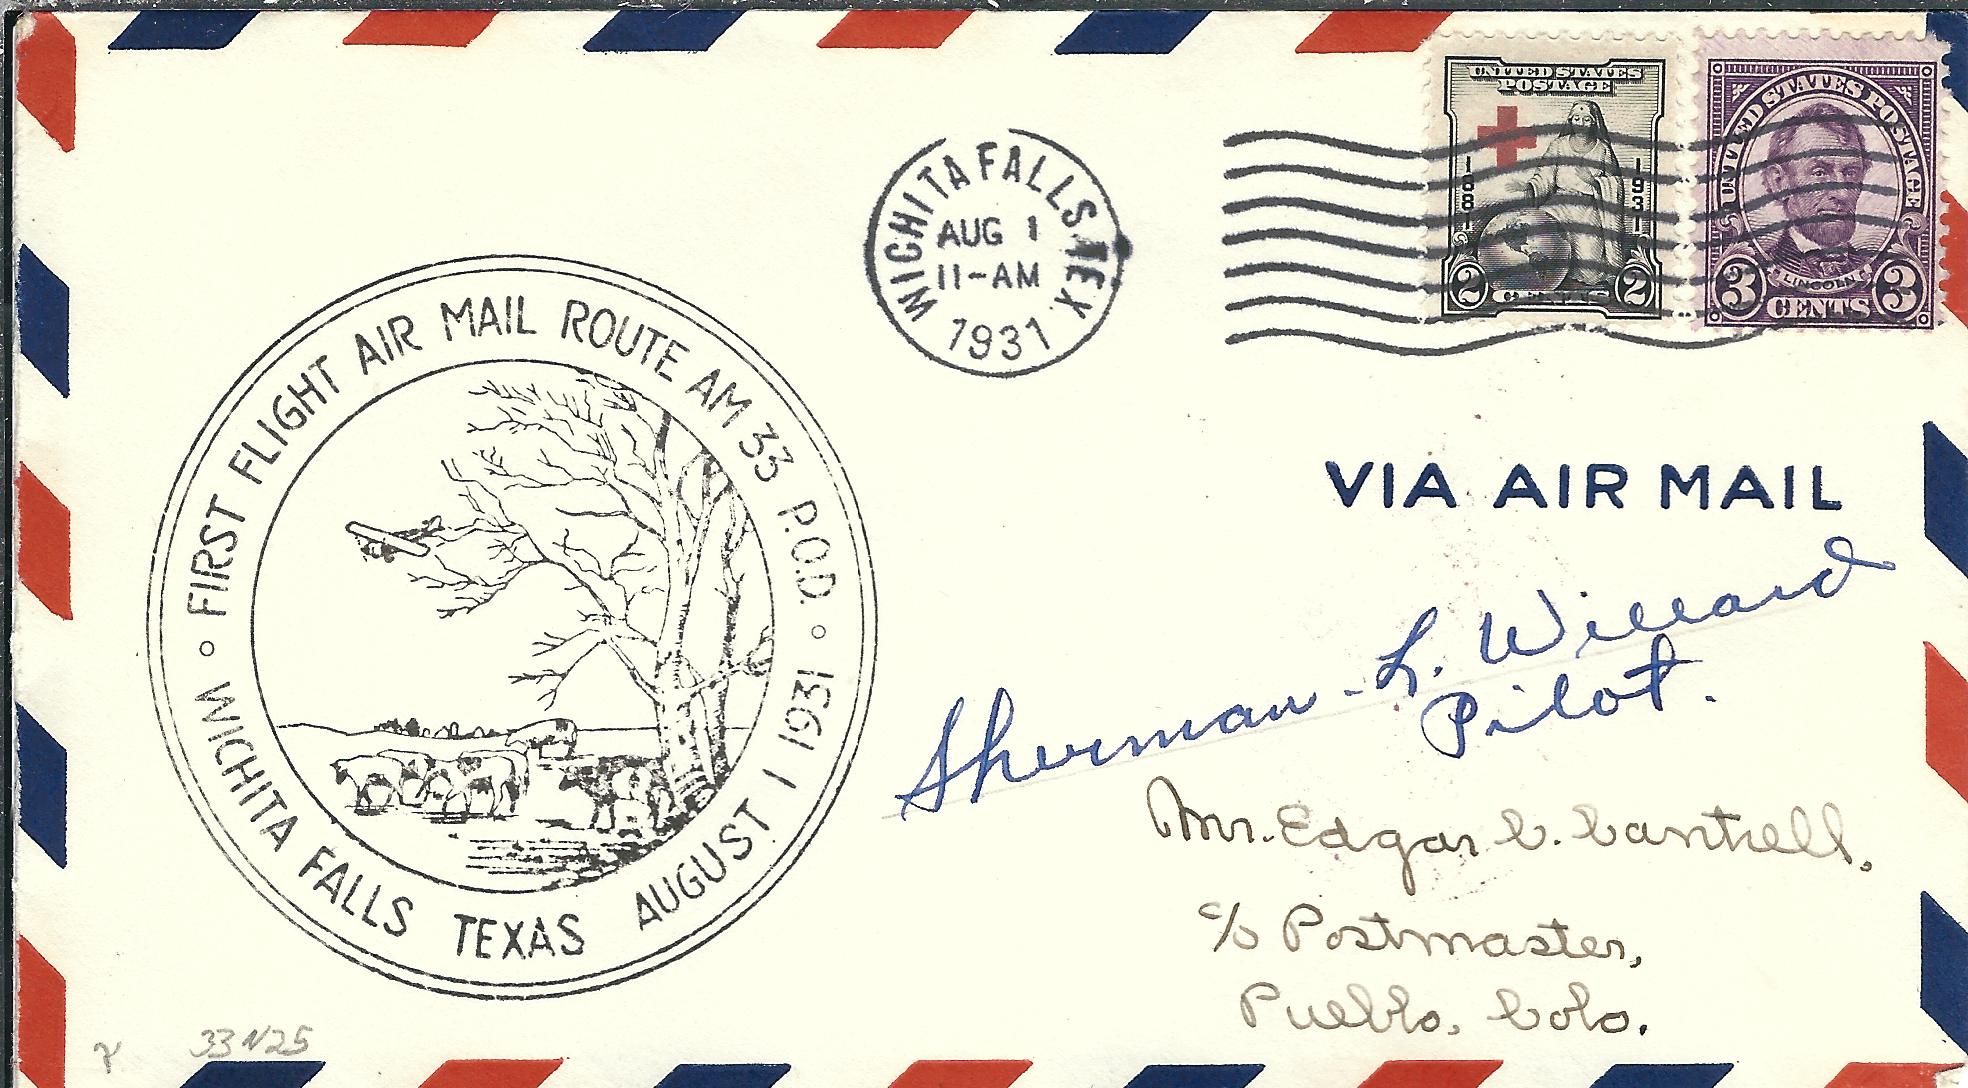 UNITED STATES
POSTAGE
1881
1931
2 CENTS 2
UNITED STATES POSTAGE
LINCOLN
3 CENTS 3
WICHITA FALLS. TEX.
AUG 1
11-AM
1931
FIRST FLIGHT AIR MAIL ROUTE AM 33 P.O.D.
WICHITA FALLS TEXAS AUGUST 1 1931
VIA AIR MAIL
Sherman L. Willard
Pilot.
Mr. Edgar C. Cantrell,
c/o Postmaster,
Pueblo, Colo.
33N25